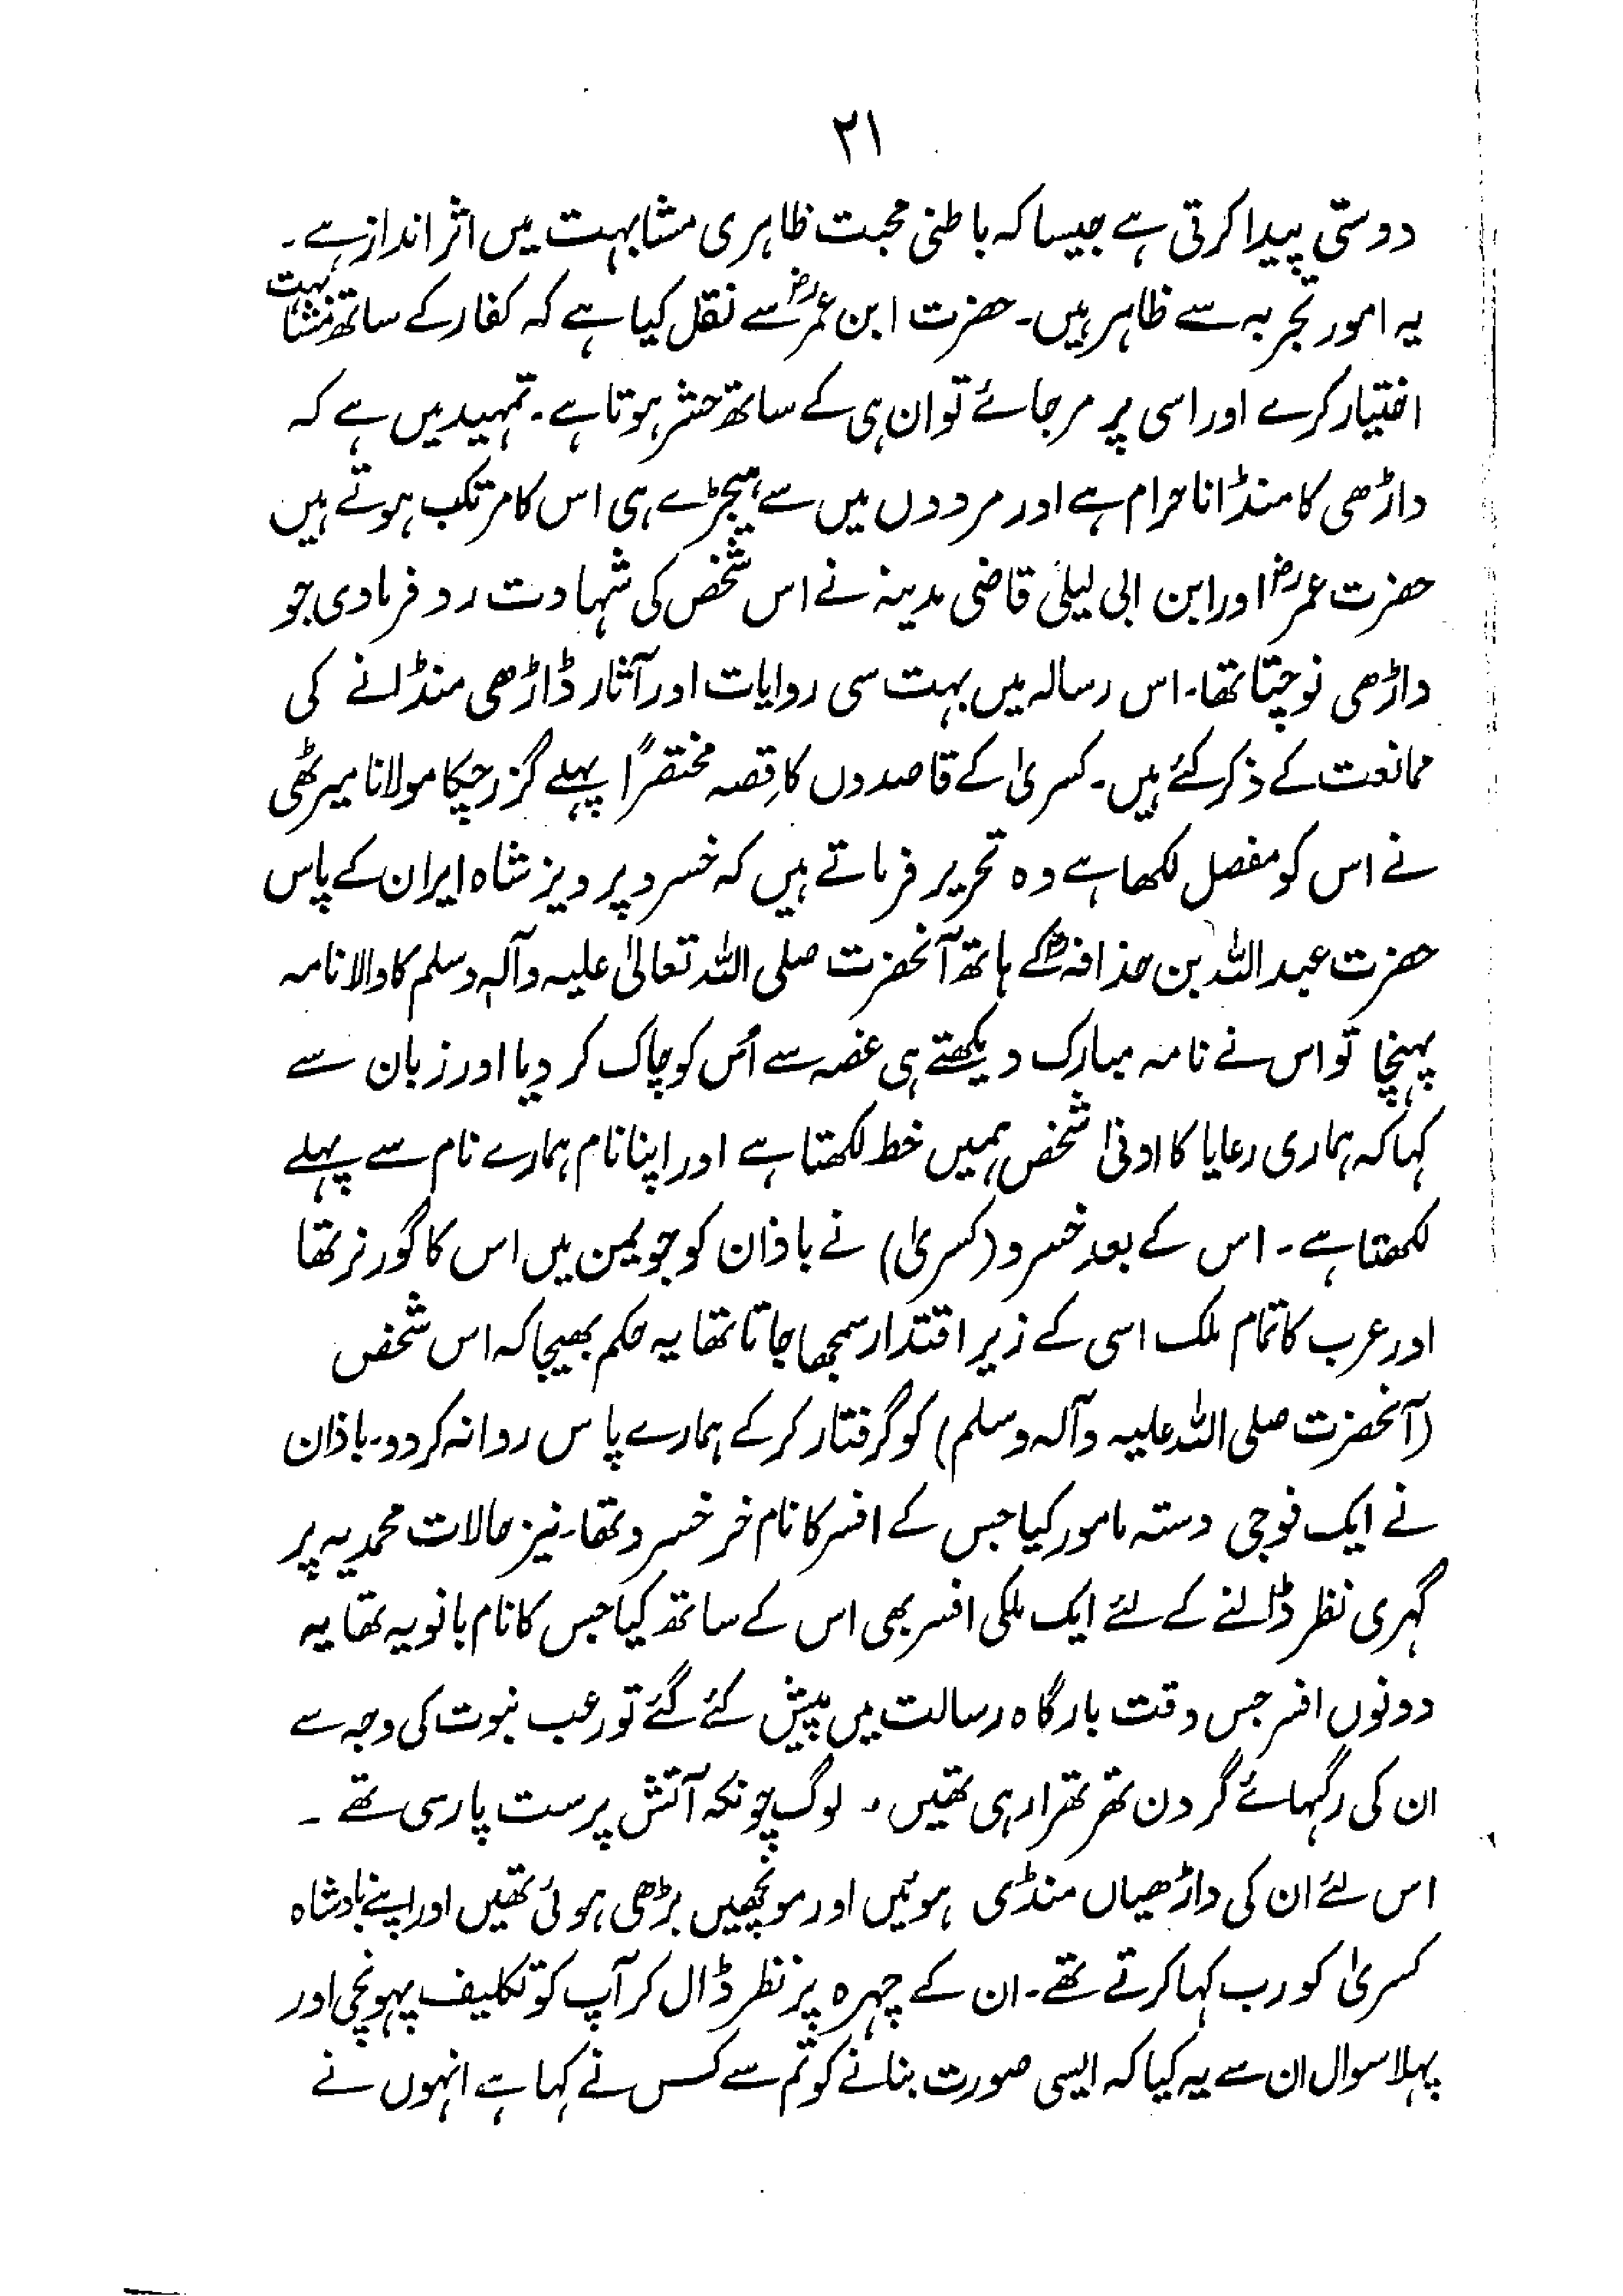 ۲۱
دوستی پیدا کرتی ہے جیسا کہ باطنی محبت ظاہری مشابہت میں اثر انداز ہے۔
یہ امور تجربہ سے ظاہر ہیں۔ حضرت ابن عمرؓ سے نقل کیا ہے کہ کفار کے ساتھ مشابہت
اختیار کرے اور اسی پر مر جائے تو ان ہی کے ساتھ حشر ہوتا ہے۔ تمہید میں ہے کہ
داڑھی کا منڈانا حرام ہے اور مردوں میں سے ہیجڑے ہی اس کا مرتکب ہوتے ہیں
حضرت عمرؓ اور ابن ابی لیلیٰ قاضی مدینہ نے اس شخص کی شہادت رد فرما دی جو
داڑھی نوچتا تھا۔ اس رسالہ میں بہت سی روایات اور آثار ڈاڑھی منڈانے کی
ممانعت کے ذکر کئے ہیں۔ کسریٰ کے قاصدوں کا قِصہ مختصراً پہلے گزر چکا مولانا میرٹھی
نے اس کو مفصل لکھا ہے وہ تحریر فرماتے ہیں کہ خسرو پرویز شاہ ایران کے پاس
حضرت عبداللہ بن حذافہؓ کے ہاتھ آنحضرت صلی اللہ تعالیٰ علیہ وآلہٖ وسلم کا والا نامہ
پہنچا تو اس نے نامہ مبارک دیکھتے ہی غصہ سے اُس کو چاک کر دیا اور زبان سے
کہا کہ ہماری رعایا کا ادنیٰ شخص ہمیں خط لکھتا ہے اور اپنا نام ہمارے نام سے پہلے
لکھتا ہے۔ اس کے بعد خسرو (کسریٰ) نے باذان کو جو یمن میں اس کا گورنر تھا
اور عرب کا تمام ملک اسی کے زیر اقتدار سمجھا جاتا تھا یہ حکم بھیجا کہ اس شخص
(آنحضرت صلی اللہ علیہ وآلہ وسلم) کو گرفتار کر کے ہمارے پاس روانہ کر دو۔ باذان
نے ایک فوجی دستہ مامور کیا جس کے افسر کا نام خر خسرو تھا۔ نیز حالات محمدیہ پر
گہری نظر ڈالنے کے لئے ایک ملکی افسر بھی اس کے ساتھ کیا جس کا نام بانویہ تھا یہ
دونوں افسر جس وقت بارگاہ رسالت میں پیش کئے گئے تو رعب نبوت کی وجہ سے
ان کی رگہائے گردن تھر تھرا رہی تھیں۔ لوگ چونکہ آتش پرست پارسی تھے ۔
اس لئے ان کی داڑھیاں منڈی ہوئیں اور مونچھیں بڑھی ہوئی تھیں اور اپنے بادشاہ
کسریٰ کو رب کہا کرتے تھے۔ ان کے چہرہ پر نظر ڈال کر آپ کو تکلیف پہونچی اور
پہلا سوال ان سے یہ کیا کہ ایسی صورت بنانے کو تم سے کس نے کہا ہے انہوں نے